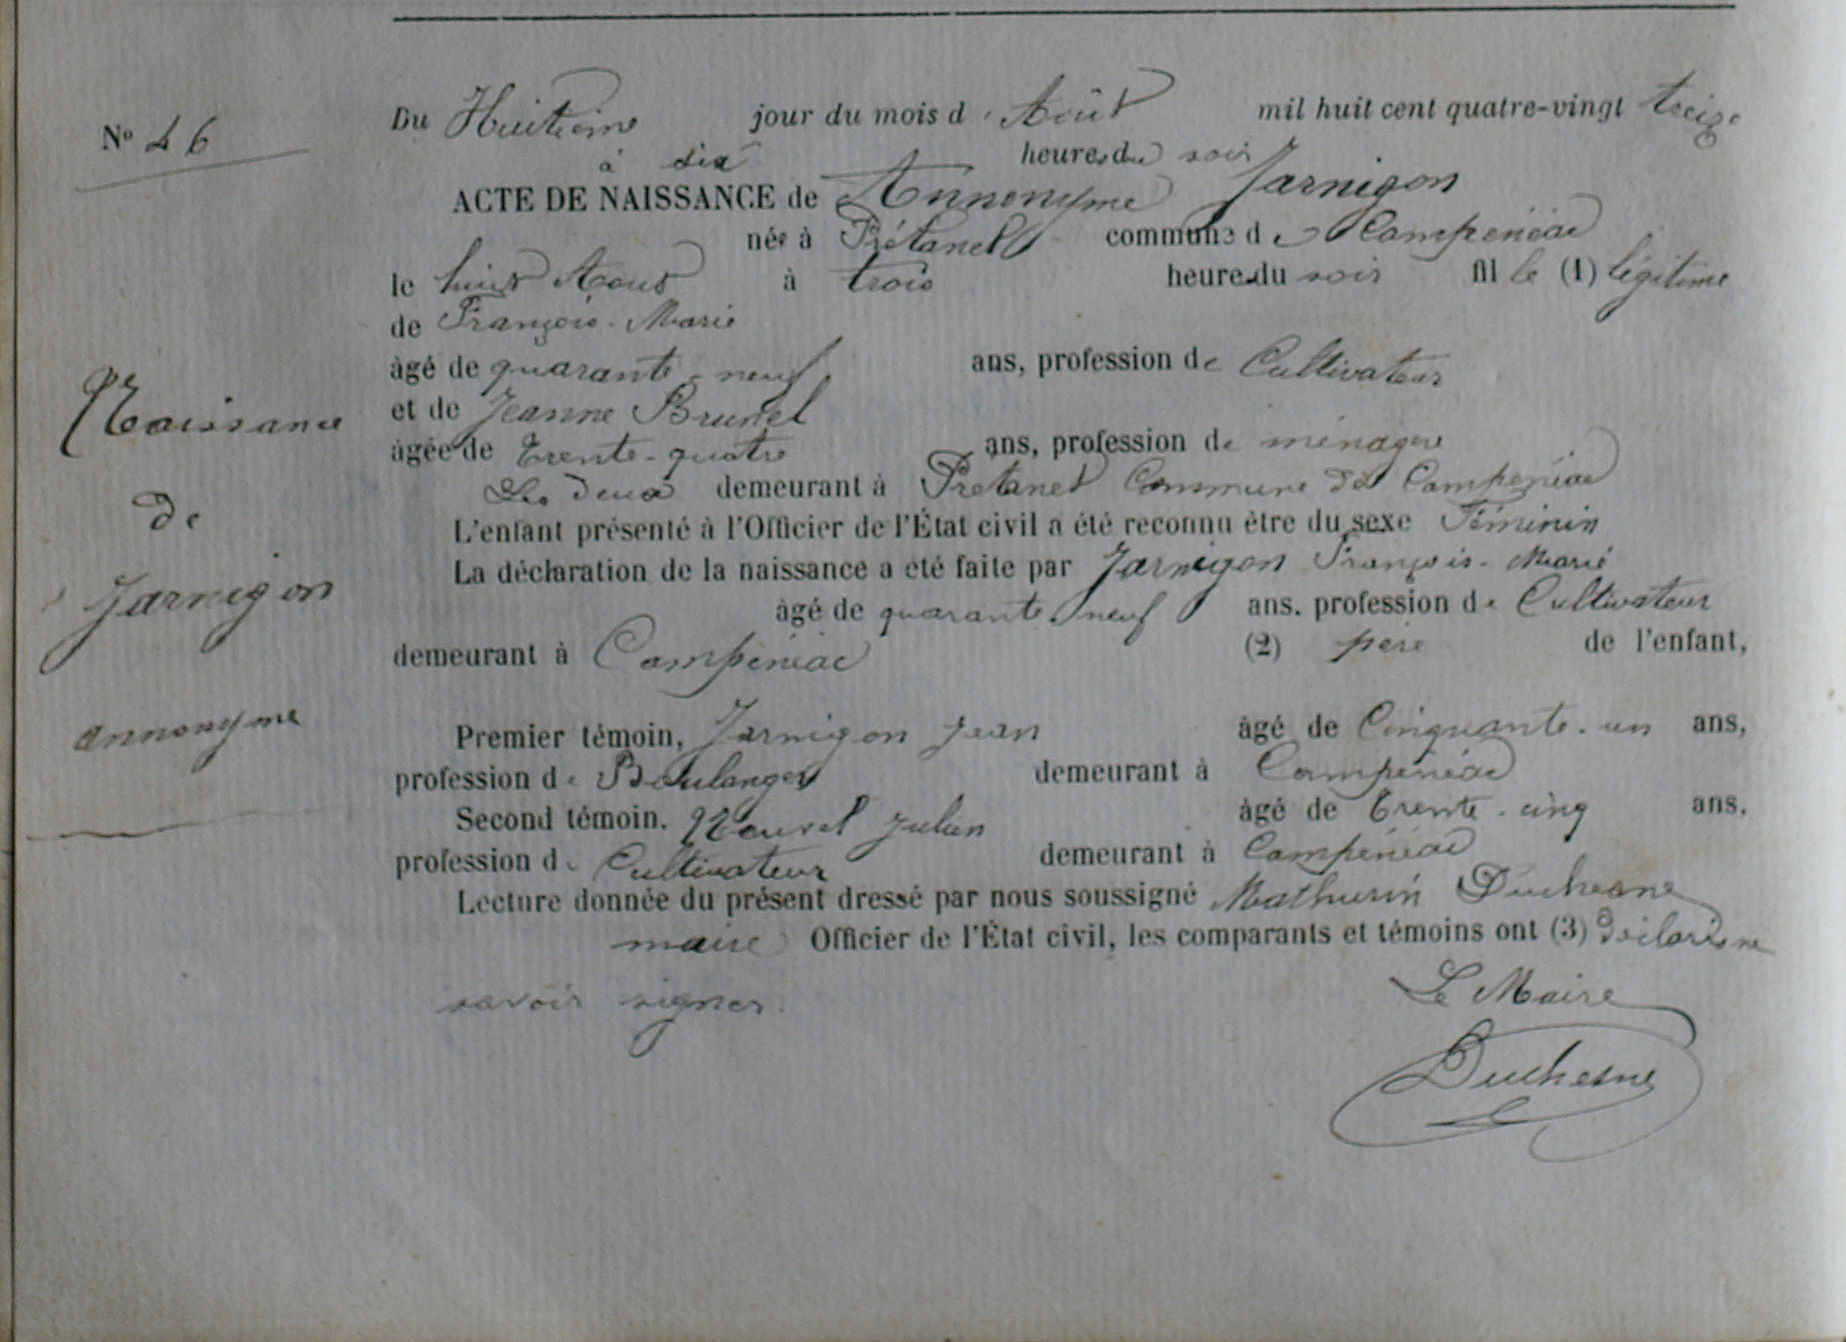 Nº 46
Du Huitième jour du mois d'Août mil huit cent quatre-vingt treize
à six heures du soir
ACTE DE NAISSANCE de Annonyme Jarnigon
née à Prétanet commune de Campénéac
le huit Aout à trois heures du soir fille (1) légitime
de François-Marie
âgé de quarante-neuf ans, profession de Cultivateur
et de Jeanne Brunel
âgée de Trente-quatre ans, profession de ménagère
Les deux demeurant à Prétanet Commune de Campénéac
L'enfant présenté à l'Officier de l'État civil a été reconnu être du sexe Féminin
La déclaration de la naissance a été faite par Jarnigon François-Marie
âgé de quarante neuf ans. profession de Cultivateur
demeurant à Campénéac (2) père de l'enfant,
Premier témoin, Jarnigon Jean âgé de Cinquante-un ans,
profession de Boulanger demeurant à Campénéac
Second témoin. Julien âgé de Trente-cinq ans,
profession de Cultivateur demeurant à Campénéac
Lecture donnée du présent dressé par nous soussigné Mathurin Duchesne
maire Officier de l'État civil, les comparants et témoins ont (3) déclaré ne
savoir signer.
Le Maire
Duchesne
Naissance
de
Jarnigon
annonyme